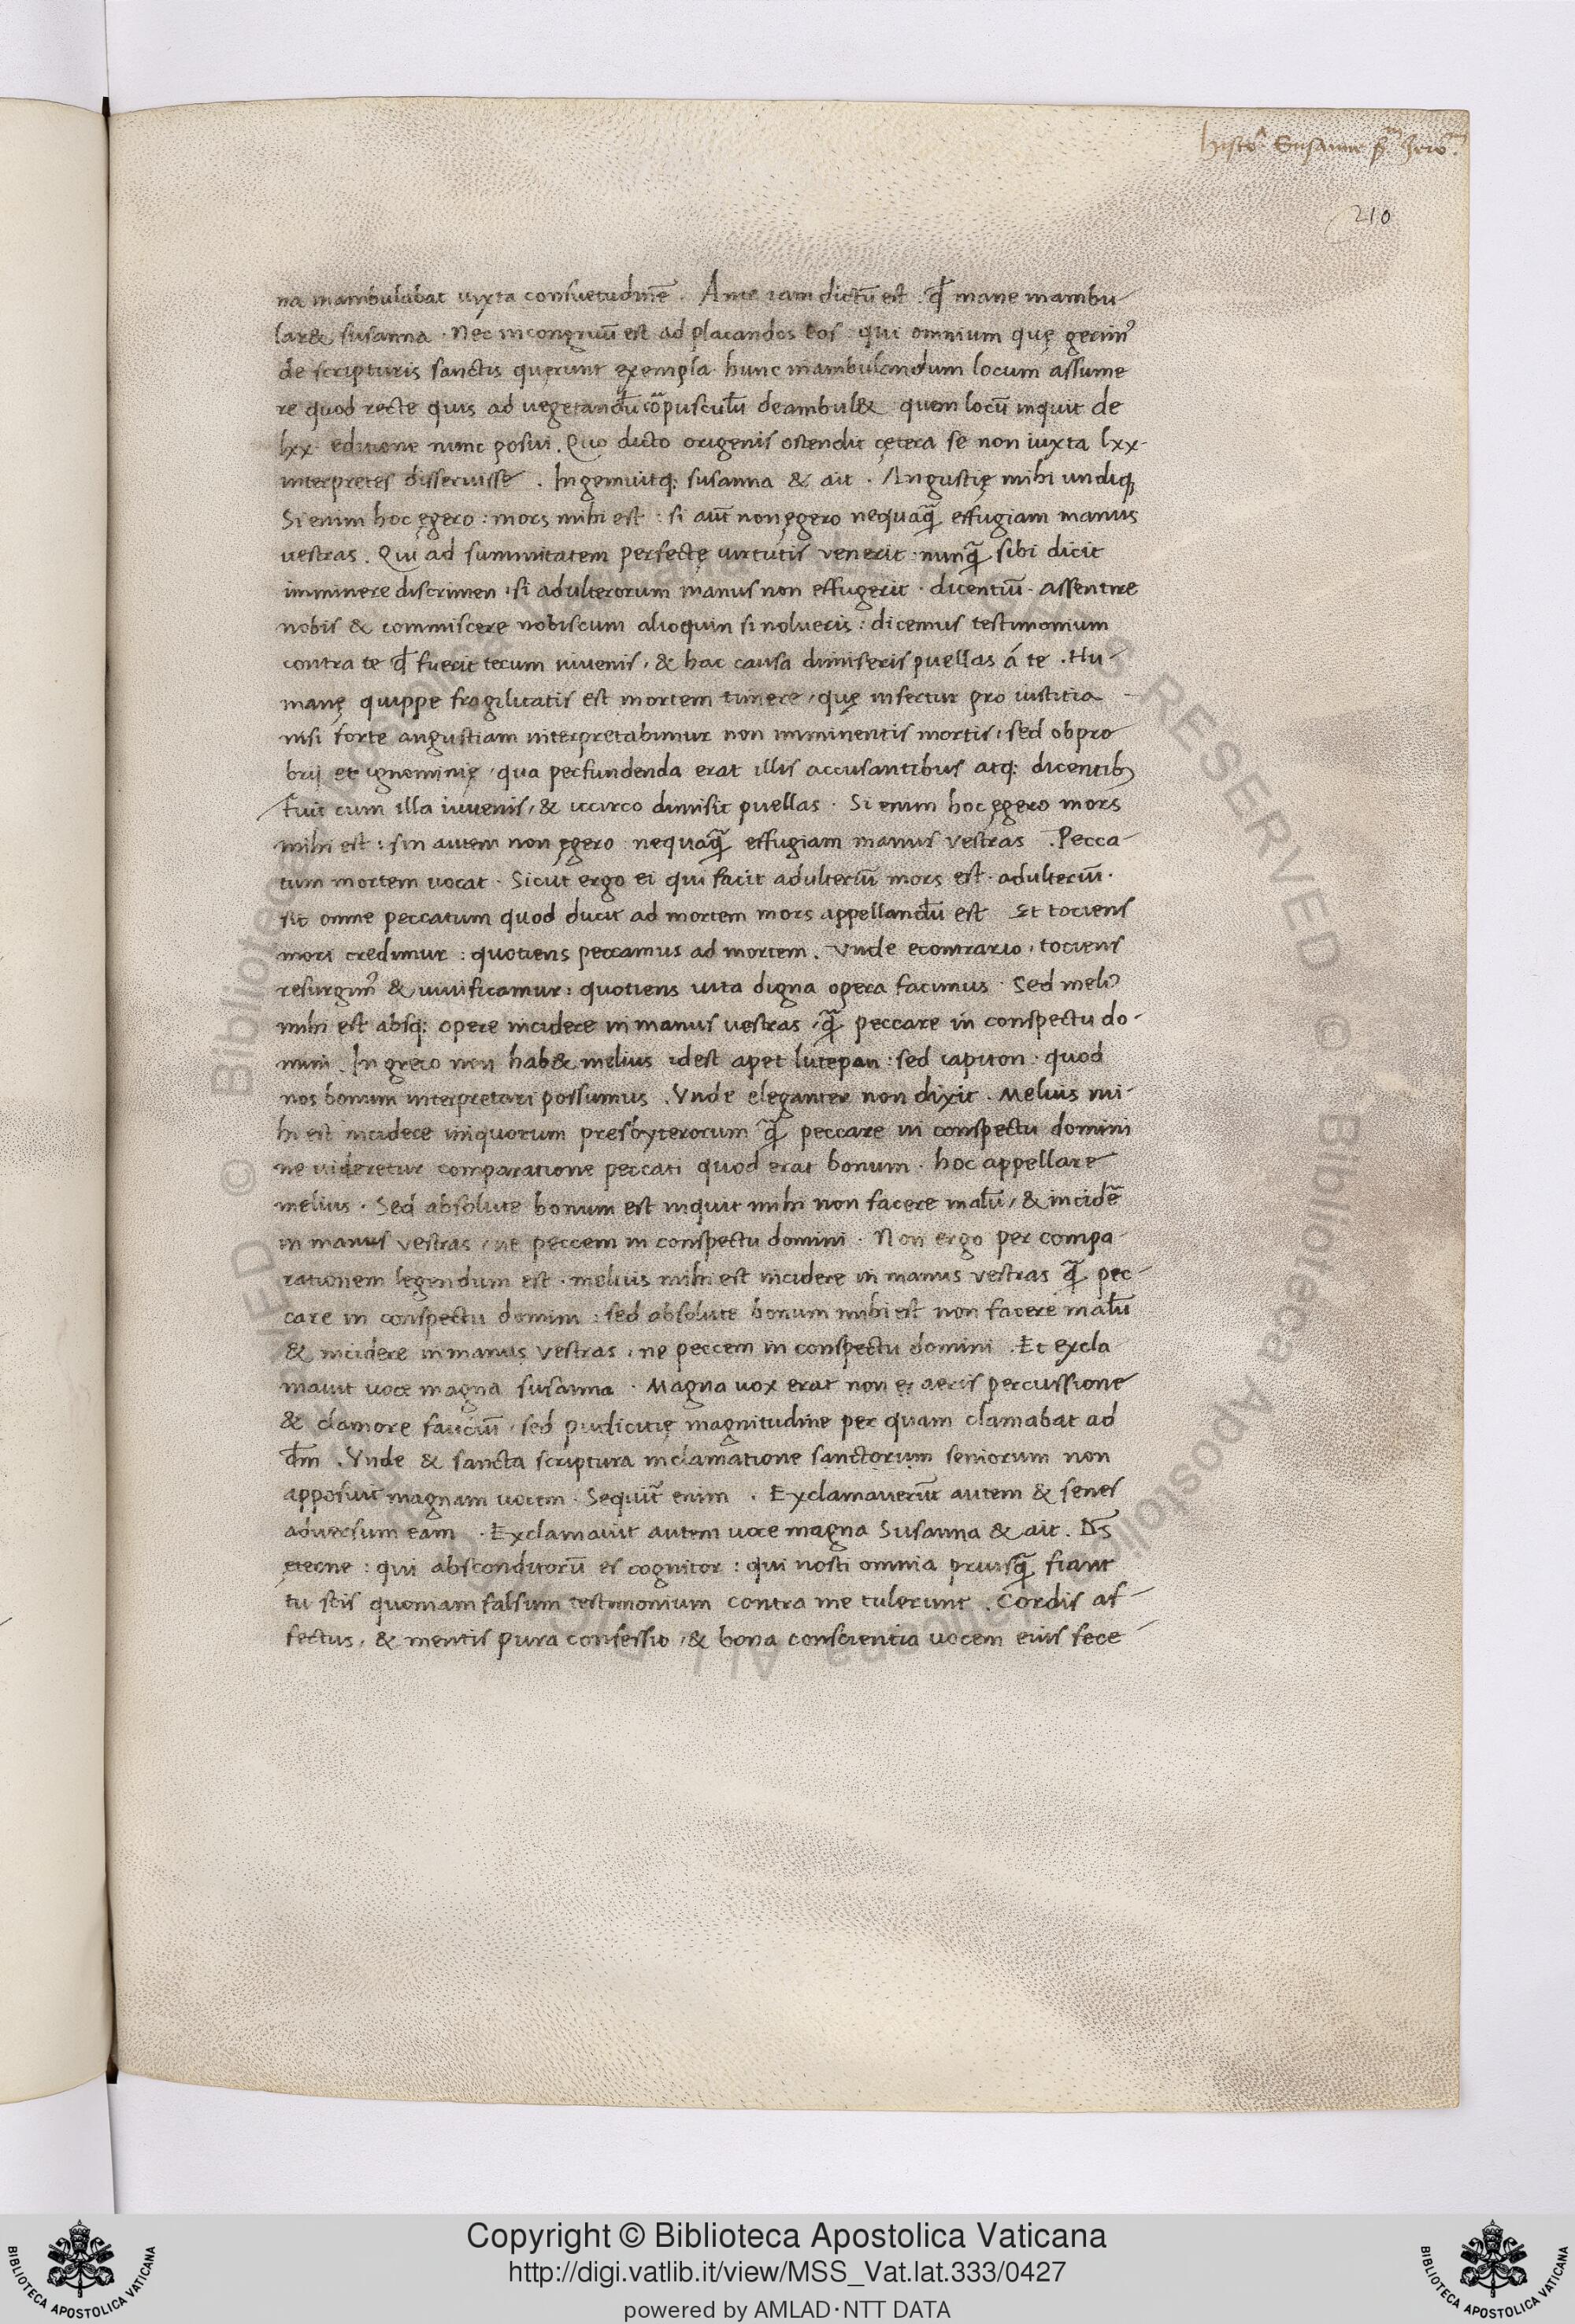 histoᵃ Susanne
210
na inambulabat iuxta consuetudinē . Ante iam dictū est . qđ mane inambu-
lar& susanna . Nec incongruū est ad placandos eos qui omnium quę gerimꝰ
de scripturis sanctis quęrunt exempla hunc inambulandum locum assume
re quod recte quis ad uegetandū cōpusculū deambul& quem locū inquit de
lxx editione nunc posui . Quo dicto origenis ostendit cętera se non iuxta lxx-
interpretes disseruisse . Ingemuitq: susanna & ait . Angustię mihi undiq;
Si enim hoc ęgero : mors mihi est : si aūt non ęgero nequaꝗ̄ effugiam manus
uestras . Qui ad summitatem perfectę uirtutis venerit . nunꝗ̄ sibi dicit
imminere discrimen : si adulterorum manus non effugerit . dicentiū . assentire
nobis & commiscere nobiscum alioquin si nolueris : dicemus testimonium
contra te qđ fuerit tecum iuuenis , & hac causa dimiseris puellas á te . Hu-
manę quippe fragilitatis est mortem timere , quę infertur pro iustitia
nisi forte angustiam interpretabimur non imminentis mortis : sed obpro
brij et ignominię , qua perfundenda erat illis accusantibus atq: dicentibꝫ
Fuit cum illa iuuenis , & iccirco dimisit puellas . Si enim hoc ęgero mors
mihi est : sin autem non ęgero nequaꝗ̄ effugiam manus vestras . Pecca-
tum mortem uocat . Sicut ergo ei qui facit adulteriū mors est . adulteriū .
sic omne peccatum quod ducit ad mortem mors appellandū est Et tociens
mori credimur : quotiens peccamus ad mortem . Vnde econtrario , tociens
resurgimꝰ & uiuificamur : quotiens uita digna opera facimus . Sed meliꝰ
mihi est absq: opere incidere in manus uestras , ꝗ̄ peccare in conspectu do-
mini . In greco non hab& melius idest apet lutepan : sed iapiton : quod
nos bonum interpretari possumus . Vnde eleganter non dixit . Melius mi-
hi est incidere iniquorum presbyterorum ꝗ̄ peccare in conspectu domini
ne uideretur comparatione peccati quod erat bonum . hoc appellare
melius . Sed absolute bonum est inquit mihi non facere malū , & incidē
in manus vestras , ne peccem in conspectu domini . Non ergo per compa
rationem legendum est . melius mihi est incidere in manus vestras ꝗ̄ pec-
care in conspectu domini : sed absolute bonum mihi est non facere malū
& incidere in manus vestras , ne peccem in conspectu domini . Et excla
mauit uoce magna susanna . Magna uox erat non ex aeris percussione
& clamore fauciū , sed pudicitię magnitudine per quam clamabat ad
dm̄ . Vnde & sancta scriptura inclamatione sanctorum seniorum non
apposuit magnam uocem . Sequit̄ enim . Exclamauerūt autem & senes
aduersum eam . Exclamauit autem uoce magna Susanna & ait . Ds̄
ęterne : qui absconditorū es cognitor : qui nosti omnia priusꝗ̄ fiant
tu scis quoniam falsum testimonium contra me tulerunt . Cordis af-
fectus , & mentis pura confessio , & bona conscientia uocem eius fece-
Copyright © Biblioteca Apostolica Vaticana
http://digi.vatlib.it/view/MSS_Vat.lat.333/0427
powered by AMLAD·NTT DATA
BIBLIOTECA APOSTOLICA VATICANA
BIBLIOTECA APOSTOLICA VATICANA